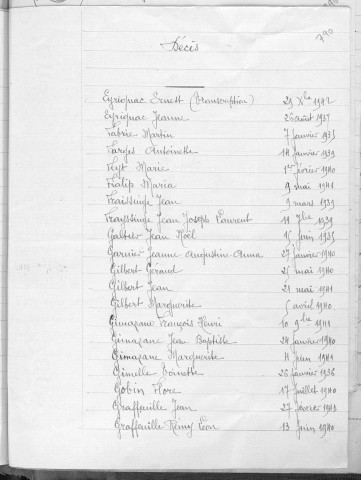 790
Décis
Eyrignac Ernest (transcription) 29 Xbre 1942
Eyrignac Jeanne 26 août 1937
Fabrie Martin 7 janvier 1935
Farges Antoinette 14 janvier 1939
Feyt Marie 1er février 1940
Fialip Maria 9 mai 1941
Fraissinge Jean 9 mars 1939
Frayssinge Jean Joseph Laurent 11 7bre 1939
Galtier Jean Noël 15 juin 1935
Garnier Jeanne Augustin Anna 27 janvier 1940
Gilbert Géraud 25 mai 1940
Gilbert Jean 21 mai 1941
Gilbert Marguerite 5 avril 1940
Gimazane François Henri 10 9bre 1941
Gimazane Jean Baptiste 24 janvier 1940
Gimazane Marguerite 4 juin 1941
Gimelle Toinette 26 janvier 1936
Gobin Flore 17 juillet 1940
Graffeuille Jean 27 février 1943
Graffeuille Rémy Léon 13 juin 1940